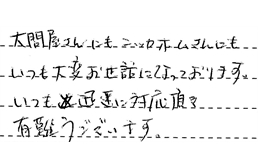 大問屋さんにもニッカホームさんにも
いつも大変お世話になっております。
いつも迅速に対応頂き
有難うございます。